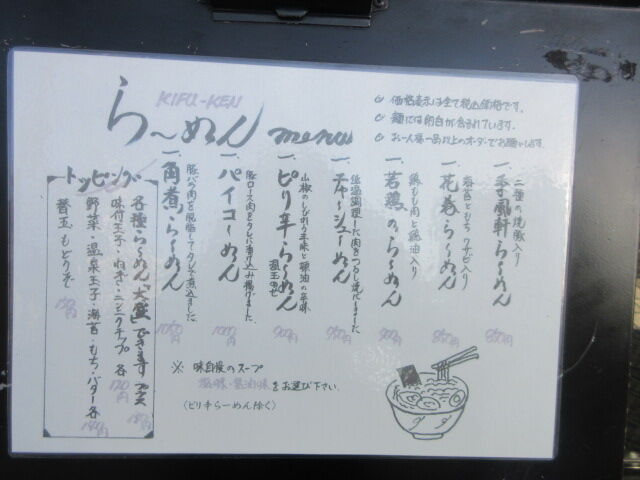 KIFU-KEN
らーめん menu
価格表示は全て税込価格です。
麺には卵白が含まれています。
お一人様一品以上のオーダーでお願いします。
一、季風軒らーめん
二種の焼豚入り
850円
一、花巻らーめん
海苔ともちワサビ入り
850円
一、若鶏のらーめん
鶏もも肉と鶏油入り
900円
一、チャーシューめん
低温調理した肉をつるし焼にしました
950円
一、ピリ辛らーめん 温玉のせ
山椒のしびれる辛味と辣油の辛味
900円
一、パイコーめん
豚ロース肉をタレに漬け込み揚げました
1000円
一、角煮らーめん
豚バラ肉を脱脂してタレで煮込みました
1050円
トッピング
各種らーめん「大盛」できます プラス
味付玉子・ねぎ・ニンニクチップ 各 120円
野菜・温泉玉子・海苔・もち・バター 各
替玉もどうぞ
※ 味自慢のスープ
塩味・醤油味をお選び下さい。
(ピリ辛らーめん除く)